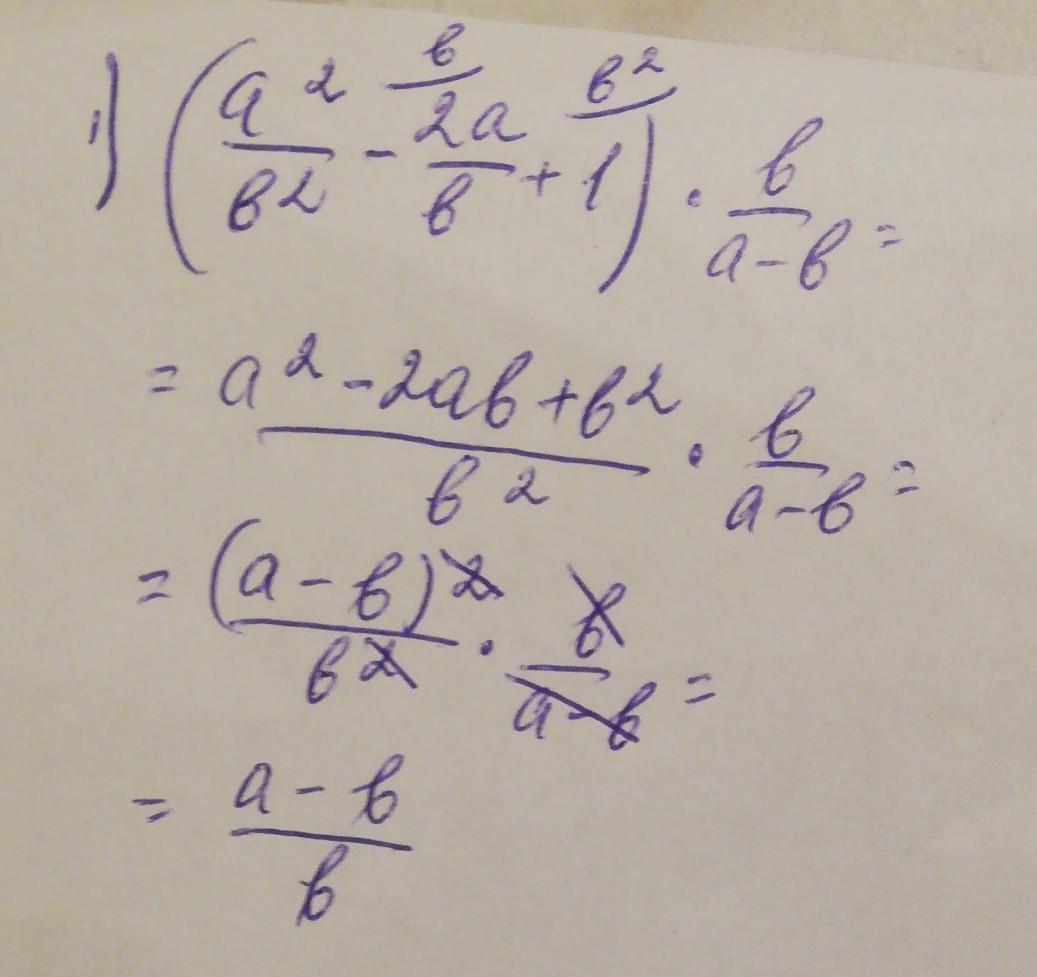 1) (a²/b² - 2a/b + 1) · b/a-b =
= a²-2ab+b²/b² · b/a-b =
= (a-b)²/b² · b/a-b =
= a-b/b